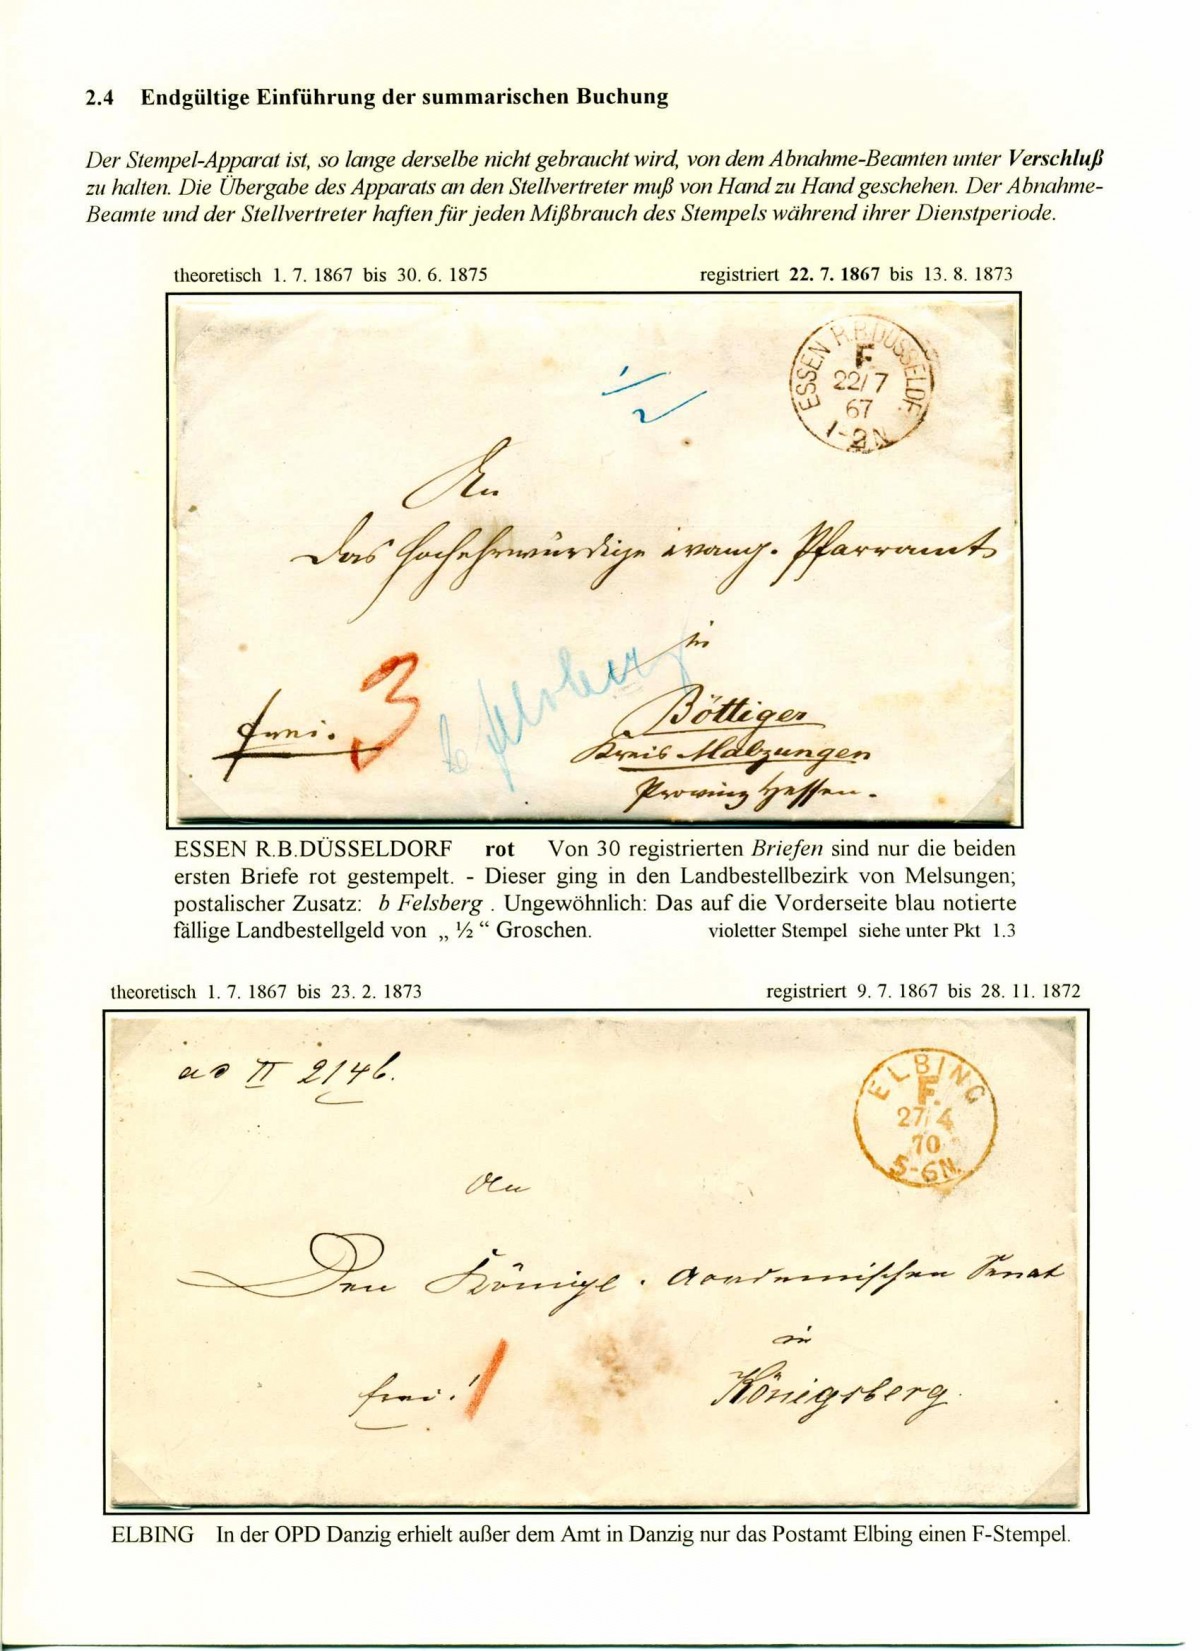 2.4 Endgültige Einführung der summarischen Buchung
Der Stempel-Apparat ist, so lange derselbe nicht gebraucht wird, von dem Abnahme-Beamten unter Verschluß
zu halten. Die Übergabe des Apparats an den Stellvertreter muß von Hand zu Hand geschehen. Der Abnahme-
Beamte und der Stellvertreter haften für jeden Mißbrauch des Stempels während ihrer Dienstperiode.
theoretisch 1. 7. 1867 bis 30. 6. 1875 registriert 22. 7. 1867 bis 13. 8. 1873
ESSEN R.B.DÜSSELDF.
F.
22/7
67
1-2N
1/2
An
das hochehrwürdige evang. Pfarramt
in
b Felsberg
frei. 3
Böttiger
Kreis Malzungen
Provinz Hessen.
ESSEN R.B.DÜSSELDORF rot Von 30 registrierten Briefen sind nur die beiden
ersten Briefe rot gestempelt. - Dieser ging in den Landbestellbezirk von Melsungen;
postalischer Zusatz: b Felsberg . Ungewöhnlich: Das auf die Vorderseite blau notierte
fällige Landbestellgeld von „ ½ “ Groschen. violetter Stempel siehe unter Pkt 1.3
theoretisch 1. 7. 1867 bis 23. 2. 1873 registriert 9. 7. 1867 bis 28. 11. 1872
ad II 2146.
ELBING
F.
27/4
70
5-6N.
An
Den Königl. academischen Senat
in
frei! 1
Königsberg.
ELBING In der OPD Danzig erhielt außer dem Amt in Danzig nur das Postamt Elbing einen F-Stempel.